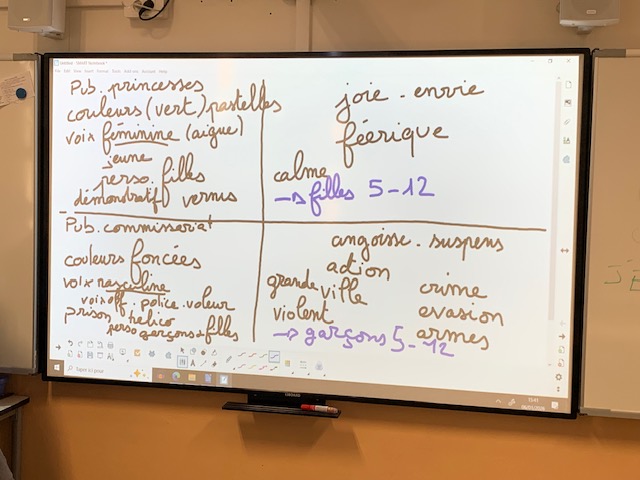 Pub. princesses
couleurs (vert) pastelles
voix féminine (aigue)
jeune
perso. filles
démondratif vernis
joie. envie
féerique
calme
→ filles 5-12
Pub. commissariat
couleurs foncées
voix masculine
voix off. police. voleur
prison hélico
perso garçons + filles
angoisse. suspens
action
grande ville
violent
crime
evasion
armes
→ garçons 5-12